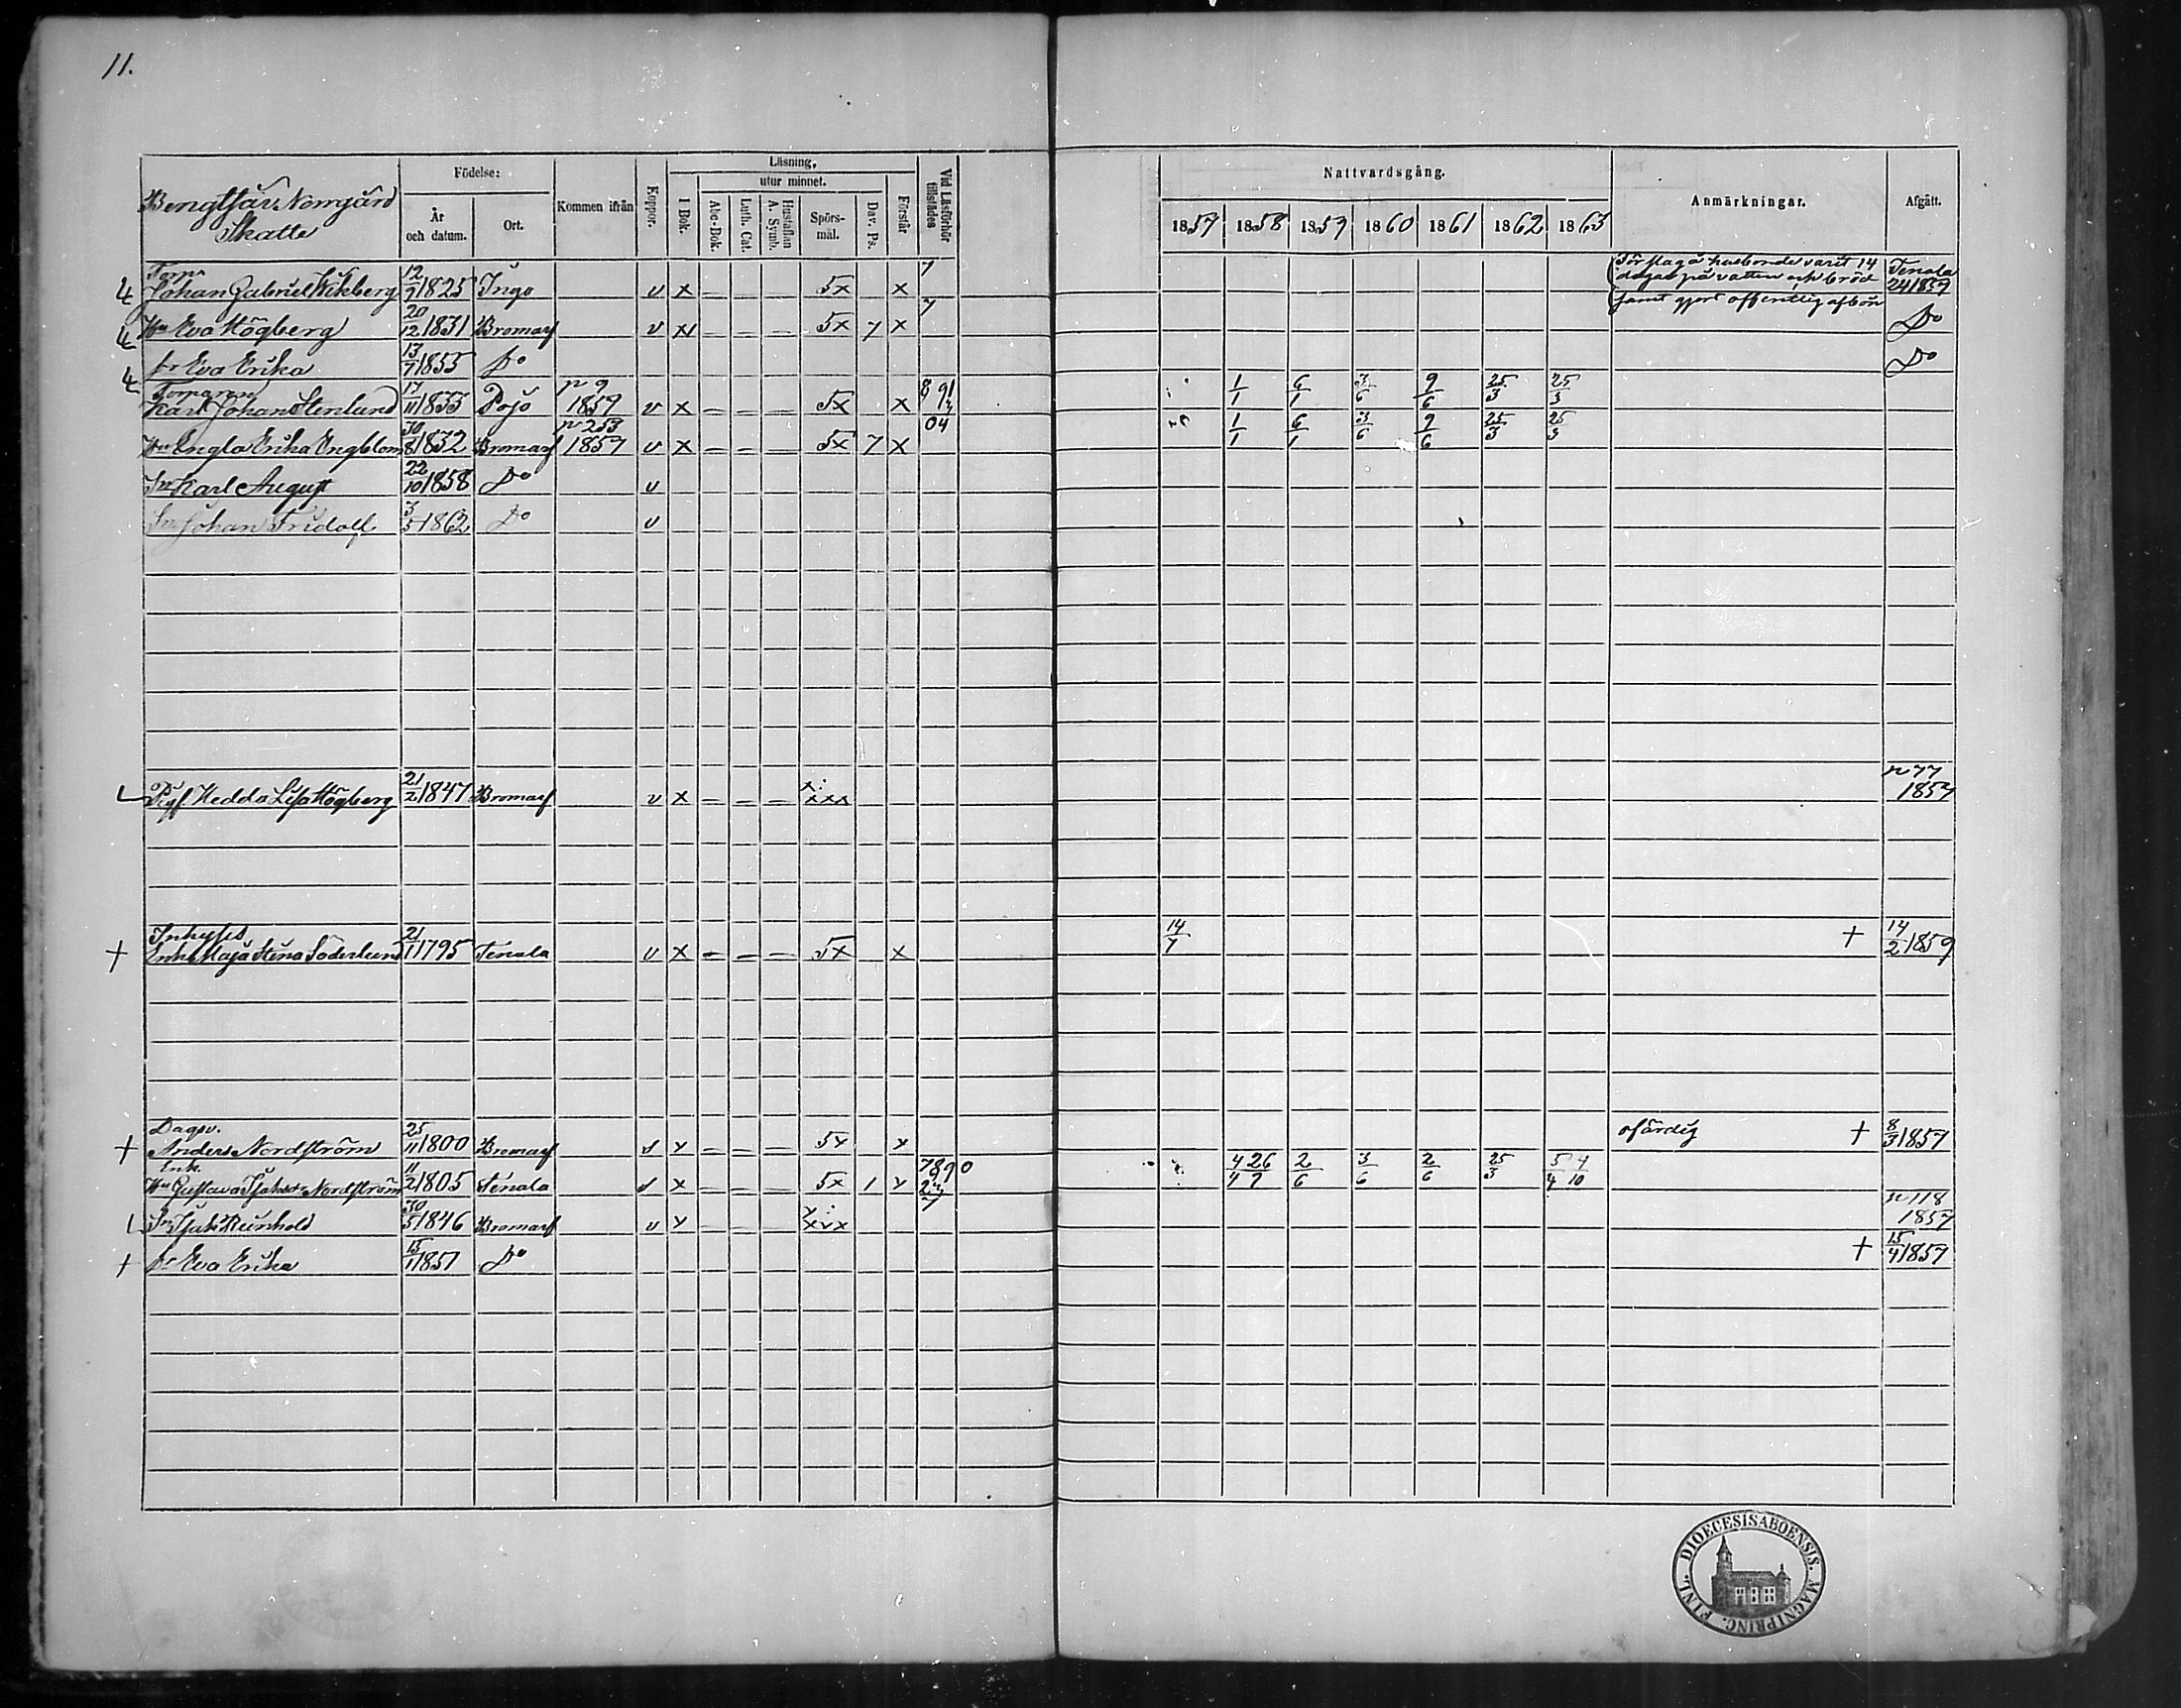 11.
Bengtsår Norrgård
Skatte
Födelse:
År
och datum.
Ort.
Kommen ifrån
Koppor.
Läsning,
I Bok.
utur minnet.
Abc-Bok.
Luth. Cat.
Hustaflan
A. Symb.
Spörs-
mål.
Dav. Ps.
Förstår
Vid Läsförhör
tillstädes
Nattvardsgång.
1857 1858 1859 1860 1861 1862 1863
Anmärkningar.
Afgått.
Torp.
Johan Gabriel Wikberg 12/7 1825 Ingo v x – – – 5x x 7
varit 14
dygn på vatten och bröd
samt gjort offentlig afbön
Tenala
24 1857
Hu Eva Högberg 20/12 1831 Bromarf v x – – – 5x 7 x 7 Do
dr Eva Erika 13/7 1855 Do Do
Torparen
Karl Johan Stenlund 17/11 1833 Pojo p 9 1859 v x – – – 5x x 1/1 6/1 3/6 9/6 25/3 25/3
Hu Engla Erika Engblom 30/8 1832 Bromarf p 253 1857 v x – – – 5x 7 x 04 1/1 6/1 3/6 9/6 25/3 25/3
Sn Karl August 22/10 1858 Do v
Sn Johan Fridolf 3/5 1862 Do v
Pig Hedda Lisa Högberg 21/2 1847 Bromarf v x – – – xxx p 77
1857
Inhyses
Enk. Maja Stina Söderlund 21/1 1795 Tenala v x – – – 5x x 14/7 + 14/2 1859
Dagsv.
Anders Nordström 25/11 1800 Bromarf v x – – – 5x x ofärdig + 8/3 1857
Enk.
Hu Gustava Isaksdr Nordström 11/2 1805 Tenala v x – – – 5x 1 x 7890 4/4 26/9 2/6 3/6 2/6 25/3 5/4 4/10
Sn Isak Reinhold 30/5 1846 Bromarf v x – – – xxx p 118
1857
dr Eva Erika 15/1 1851 Do + 15/4 1857
DIOECESIS ABOENSIS. MAGNI PRINC. FINL.